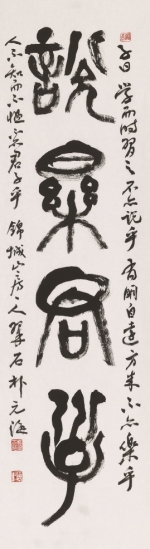 說樂君子
子曰 學而時習之 不亦說乎 有朋自遠方來 不亦樂乎
人不知而不慍 不亦君子乎 錦城山房人 翠石 朴元